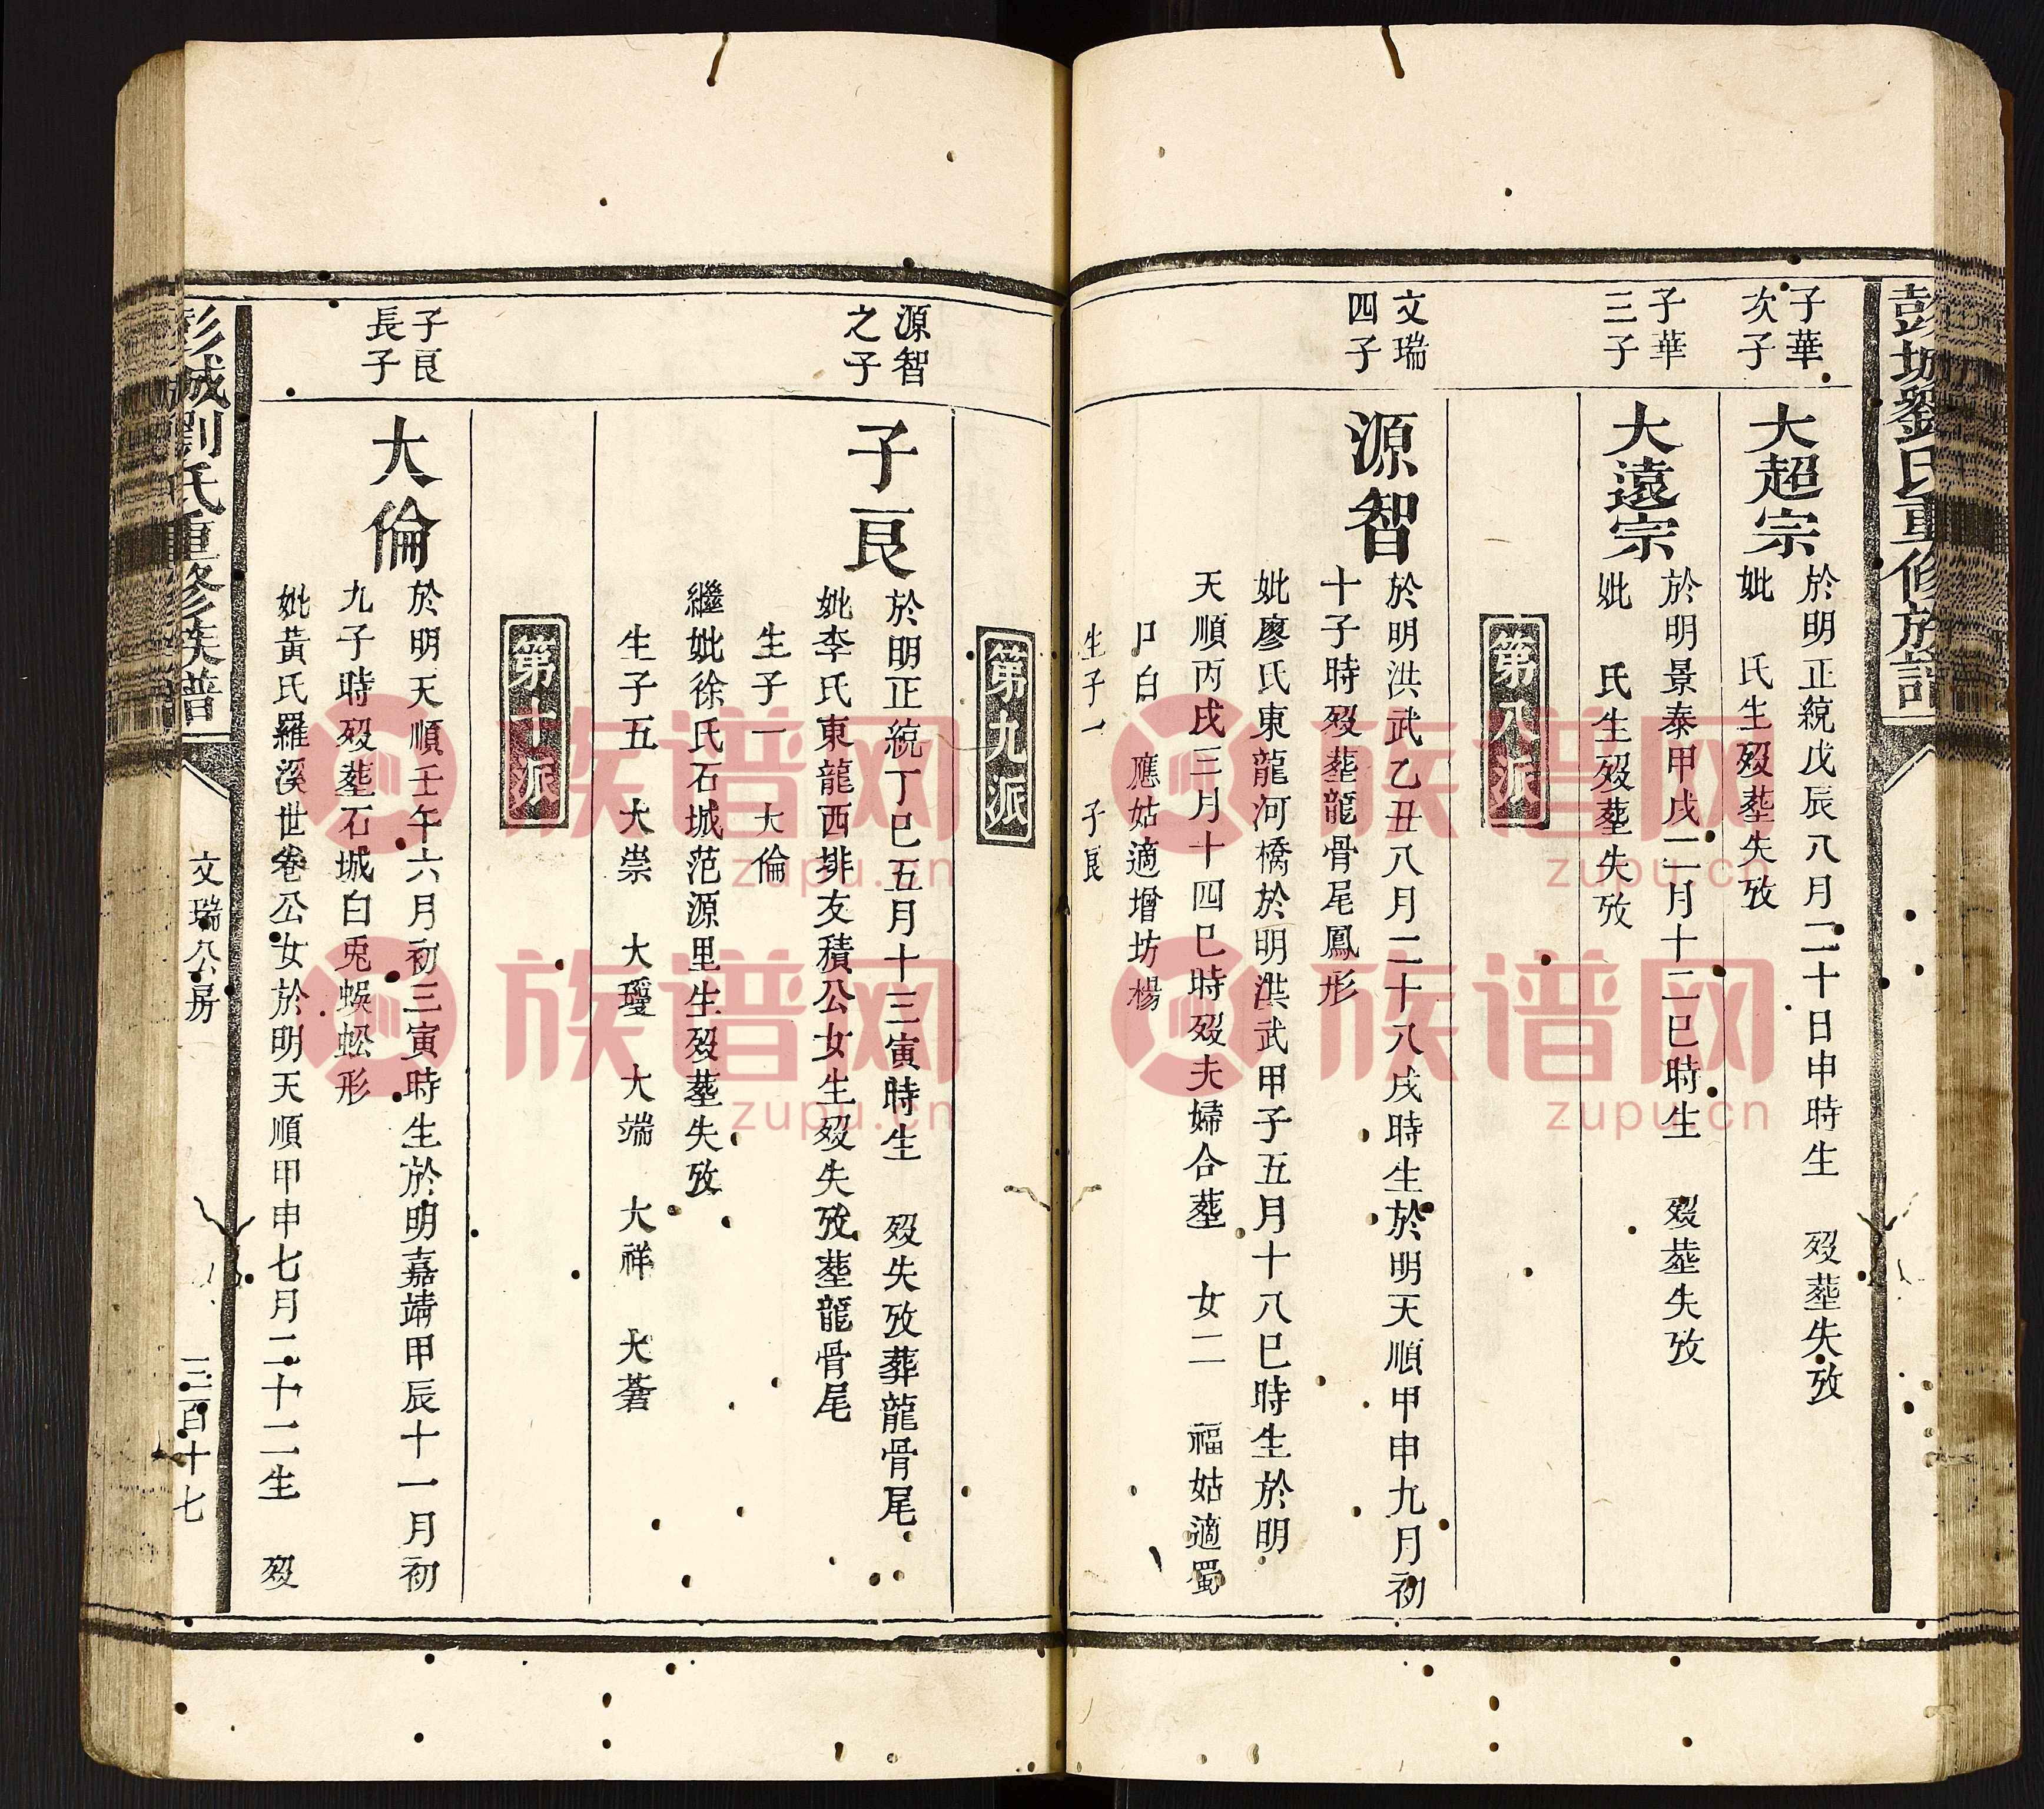 彭城劉氏重修族譜
子華
次子
大超宗
於明正統戊辰八月二十日申時生 歿塟失攷
妣 氏生歿塟失攷
子華
三子
大遠宗
於明景泰甲戌二月十二巳時生 歿塟失攷
妣 氏生歿塟失攷
第八派
文瑞
四子
源智
於明洪武乙丑八月二十八戌時生於明天順甲申九月初
十子時歿塟龍骨尾鳳形
妣廖氏東龍河橋於明洪武甲子五月十八巳時生於明
天順丙戌三月十四巳時歿夫婦合塟 女二 福姑適蜀
口白 應姑適增坊楊
生子一 子良
第九派
源智
之子
子良
於明正統丁巳五月十三寅時生 歿失攷葬龍骨尾
妣李氏東龍西排友積公女生歿失攷塟龍骨尾
生子一 大倫
繼妣徐氏石城范源里生歿塟失攷
生子五 大崇 大璦 大端 大祥 大蒼
第十派
子良
長子
大倫
於明天順壬午六月初三寅時生於明嘉靖甲辰十一月初
九子時歿塟石城白兎蜈蚣形
妣黃氏羅溪世卷公女於明天順甲申七月二十二生 歿
彭城劉氏重修族譜
文瑞公房
三百十七
族谱网
zupu.cn
族谱网
zupu.cn
族谱网
zupu.cn
族谱网
zupu.cn